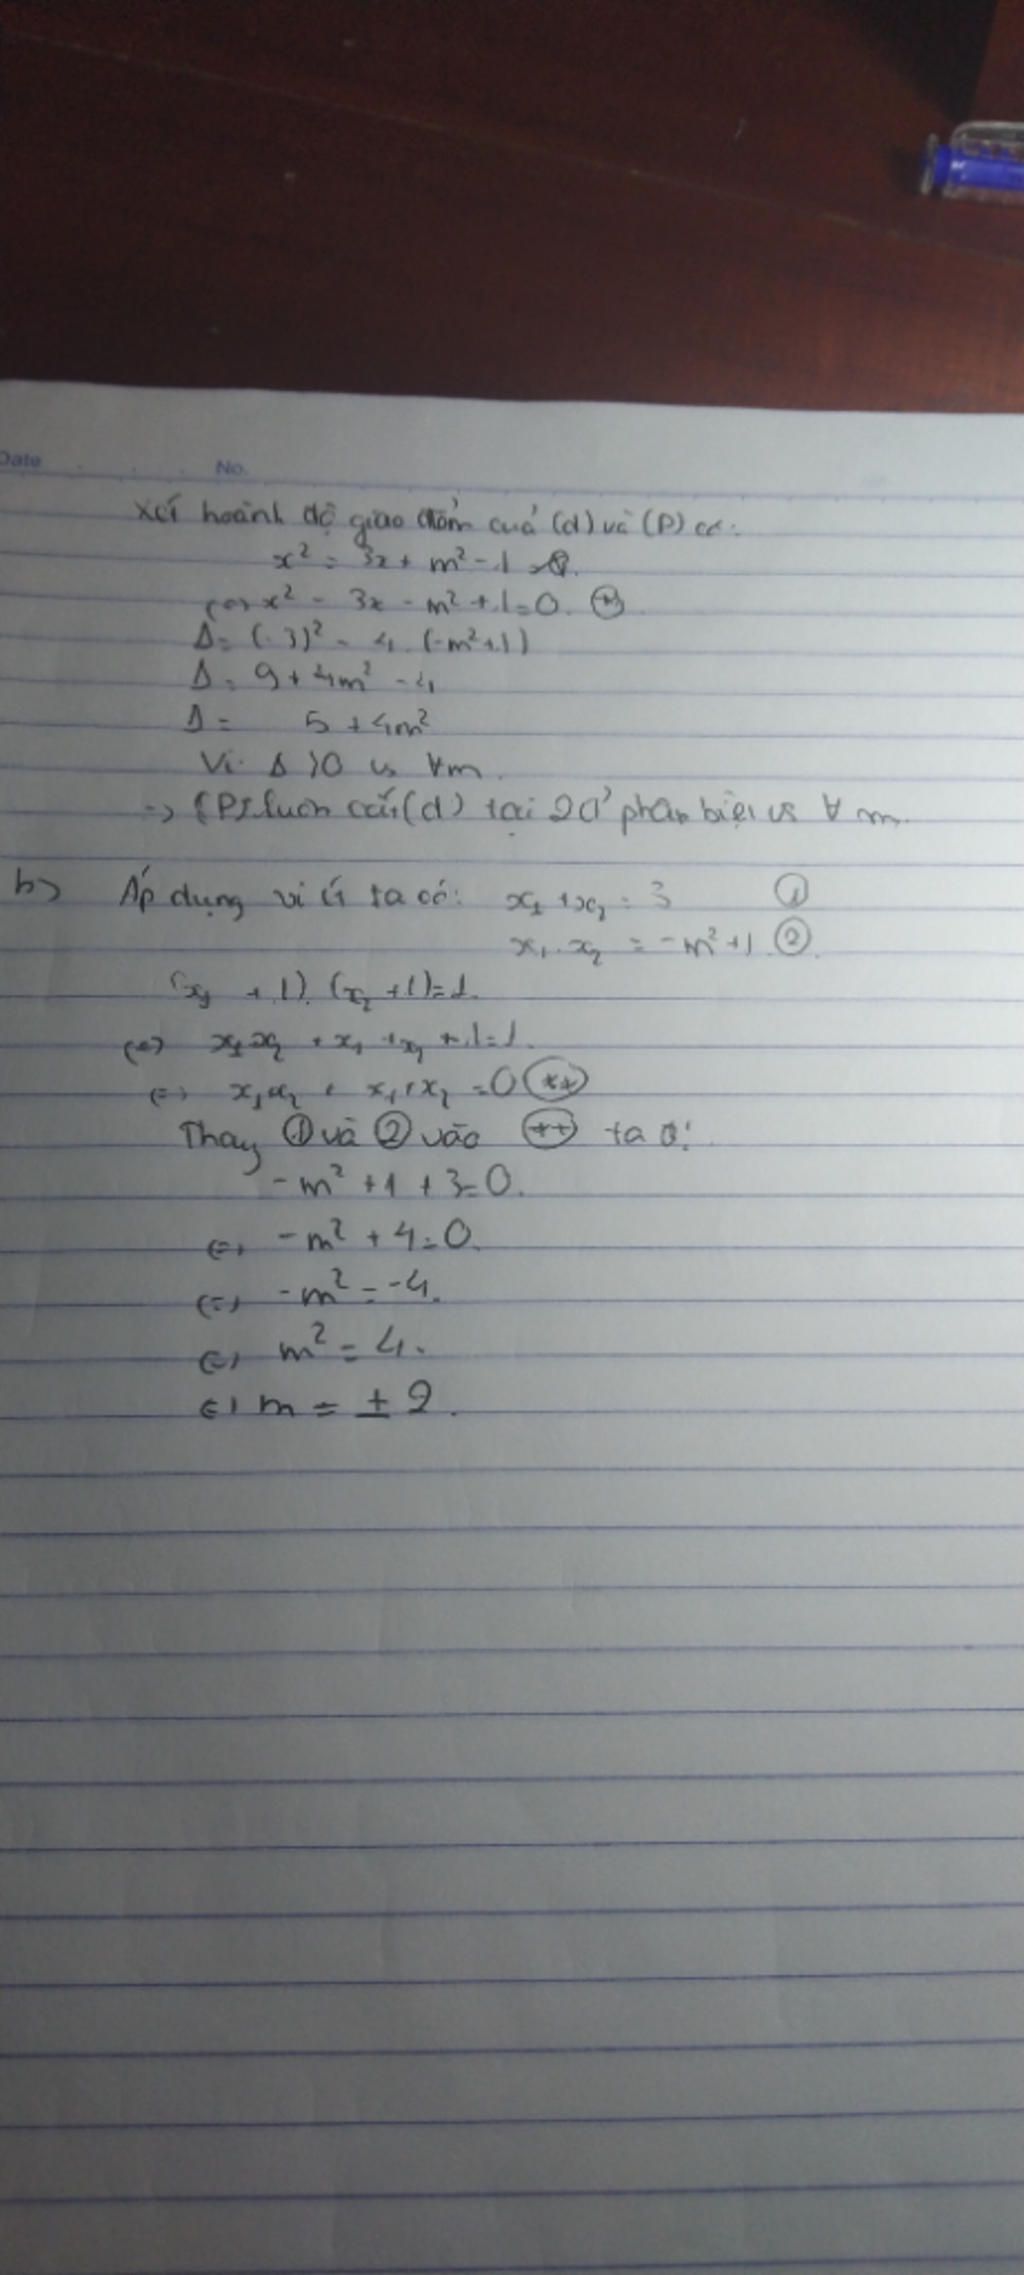 Date No.
Xét hoành độ giao điểm của (d) và (P) có:
x² = 3x + m² - 1
<=> x² - 3x - m² + 1 = 0. (*)
Δ = (-3)² - 4. (-m²+1)
Δ = 9 + 4m² - 4
Δ = 5 + 4m²
Vì Δ > 0 vs ∀m.
=> (P) luôn cắt (d) tại 2 phân biệt vs ∀ m.
b) Áp dụng vi ét ta có: x₁ + x₂ = 3 ①
x₁. x₂ = -m² + 1 ②
(x₁ + 1). (x₂ + 1) = 1.
<=> x₁x₂ + x₁ + x₂ + 1 = 1.
<=> x₁x₂ + x₁ + x₂ = 0 (**)
Thay ① và ② vào (**) ta :
-m² + 1 + 3 = 0.
<=> -m² + 4 = 0.
<=> -m² = -4.
<=> m² = 4.
<=> m = ± 2.